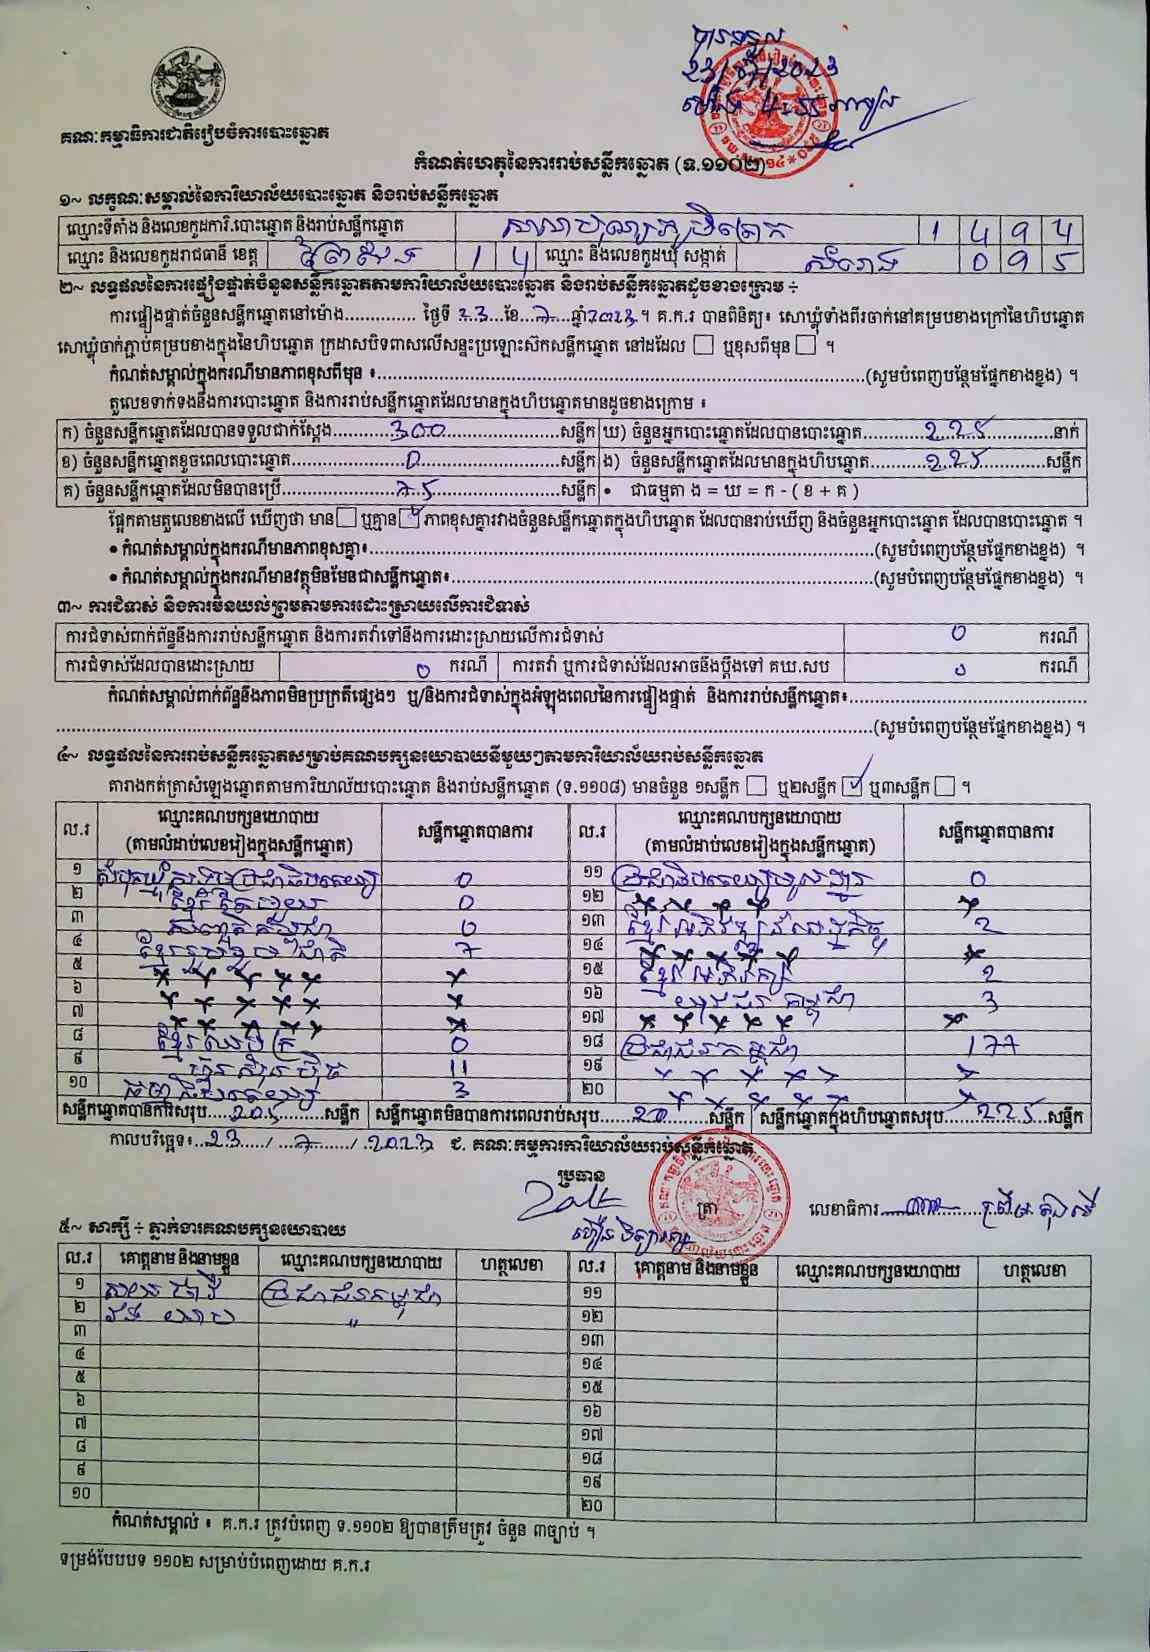 បានទទួល
23/07/2023
គណៈកម្មាធិការជាតិរៀបចំការបោះឆ្នោត
កំណត់ហេតុនៃការរាប់សន្លឹកឆ្នោត (ទ.១១០២)
១~ លក្ខណៈសម្គាល់នៃការិយាល័យបោះឆ្នោត និងរាប់សន្លឹកឆ្នោត
ឈ្មោះទីតាំង និងលេខកូដការិ.បោះឆ្នោត និងរាប់សន្លឹកឆ្នោត 1 4 9 4
ឈ្មោះ និងលេខកូដរាជធានី ខេត្ត ព្រៃវែង 1 4 ឈ្មោះ និងលេខកូដឃុំ សង្កាត់ 0 9 5
២~ លទ្ធផលនៃការផ្ទៀងផ្ទាត់ចំនួនសន្លឹកឆ្នោតតាមការិយាល័យបោះឆ្នោត និងរាប់សន្លឹកឆ្នោតដូចខាងក្រោម ÷
ការផ្ទៀងផ្ទាត់ចំនួនសន្លឹកឆ្នោតនៅម៉ោង.............. ថ្ងៃទី 23 ខែ 7 ឆ្នាំ 2023 ។ គ.ក.រ បានពិនិត្យ៖ សោឃ្លុំទាំងពីរចាក់នៅគម្របខាងក្រៅនៃហិបឆ្នោត
សោឃ្លុំចាក់ភ្ជាប់គម្របខាងក្នុងនៃហិបឆ្នោត ក្រដាសបិទពាសលើសន្ទះប្រឡោះស៊កសន្លឹកឆ្នោត នៅដដែល ☐ ឬខុសពីមុន ☐ ។
កំណត់សម្គាល់ក្នុងករណីមានភាពខុសពីមុន ៖..............(សូមបំពេញបន្ថែមផ្នែកខាងខ្នង) ។
តួលេខទាក់ទងនឹងការបោះឆ្នោត និងការរាប់សន្លឹកឆ្នោតដែលមានក្នុងហិបឆ្នោតមានដូចខាងក្រោម ៖
ក) ចំនួនសន្លឹកឆ្នោតដែលបានទទួលជាក់ស្តែង 300 សន្លឹក ឃ) ចំនួនអ្នកបោះឆ្នោតដែលបានបោះឆ្នោត 225 នាក់
ខ) ចំនួនសន្លឹកឆ្នោតខូចពេលបោះឆ្នោត 0 សន្លឹក ង) ចំនួនសន្លឹកឆ្នោតដែលមានក្នុងហិបឆ្នោត 225 សន្លឹក
គ) ចំនួនសន្លឹកឆ្នោតដែលមិនបានប្រើ 75 សន្លឹក • ជាធម្មតា ង = ឃ = ក - ( ខ + គ )
ផ្អែកតាមតួលេខខាងលើ ឃើញថា មាន ☐ ឬគ្មាន ☑ ភាពខុសគ្នារវាងចំនួនសន្លឹកឆ្នោតក្នុងហិបឆ្នោត ដែលបានរាប់ឃើញ និងចំនួនអ្នកបោះឆ្នោត ដែលបានបោះឆ្នោត ។
• កំណត់សម្គាល់ក្នុងករណីមានភាពខុសគ្នា៖..............(សូមបំពេញបន្ថែមផ្នែកខាងខ្នង) ។
• កំណត់សម្គាល់ក្នុងករណីមានវត្ថុមិនមែនជាសន្លឹកឆ្នោត៖..............(សូមបំពេញបន្ថែមផ្នែកខាងខ្នង) ។
៣~ ការជំទាស់ និងការមិនយល់ព្រមតាមការដោះស្រាយលើការជំទាស់
ការជំទាស់ពាក់ព័ន្ធនឹងការរាប់សន្លឹកឆ្នោត និងការតវ៉ាទៅនឹងការដោះស្រាយលើការជំទាស់ 0 ករណី
ការជំទាស់ដែលបានដោះស្រាយ 0 ករណី ការតវ៉ា ឬការជំទាស់ដែលអាចនឹងប្តឹងទៅ គឃ.សប 0 ករណី
កំណត់សម្គាល់ពាក់ព័ន្ធនឹងភាពមិនប្រក្រតីផ្សេងៗ ឬ/និងការជំទាស់ក្នុងអំឡុងពេលនៃការផ្ទៀងផ្ទាត់ និងការរាប់សន្លឹកឆ្នោត៖..............
..............(សូមបំពេញបន្ថែមផ្នែកខាងខ្នង) ។
៤~ លទ្ធផលនៃការរាប់សន្លឹកឆ្នោតសម្រាប់គណបក្សនយោបាយនីមួយៗតាមការិយាល័យរាប់សន្លឹកឆ្នោត
តារាងកត់ត្រាសំឡេងឆ្នោតតាមការិយាល័យបោះឆ្នោត និងរាប់សន្លឹកឆ្នោត (ទ.១១០៨) មានចំនួន ១សន្លឹក ☐ ឬ២សន្លឹក ☑ ឬ៣សន្លឹក ☐ ។
ល.រ ឈ្មោះគណបក្សនយោបាយ (តាមលំដាប់លេខរៀងក្នុងសន្លឹកឆ្នោត) សន្លឹកឆ្នោតបានការ ល.រ ឈ្មោះគណបក្សនយោបាយ (តាមលំដាប់លេខរៀងក្នុងសន្លឹកឆ្នោត) សន្លឹកឆ្នោតបានការ
១ សំបុកឃ្មុំសង្គមប្រជាធិបតេយ្យ 0 ១១ ប្រជាធិបតេយ្យមូលដ្ឋាន 0
២ ខ្មែរតែមួយ 0 ១២ x x x x x
៣ សញ្ជាតិកម្ពុជា 0 ១៣ ខ្មែរអភិវឌ្ឍន៍សេដ្ឋកិច្ច 2
៤ ខ្មែររួបរួមជាតិ 7 ១៤ x x x x x
៥ x x x x x x ១៥ ខ្មែរអភិរក្ស 2
៦ x x x x x x ១៦ យុវជនកម្ពុជា 3
៧ x x x x x ១៧ x x x x x
៨ ខ្មែរឈប់ក្រ 0 ១៨ ប្រជាជនកម្ពុជា 177
៩ ហ៊្វុនស៊ិនប៉ិច 11 ១៩ x x x x x
១០ ធម្មាធិបតេយ្យ 3 ២០ x x x x x
សន្លឹកឆ្នោតបានការសរុប 205 សន្លឹក សន្លឹកឆ្នោតមិនបានការពេលរាប់សរុប 20 សន្លឹក សន្លឹកឆ្នោតក្នុងហិបឆ្នោតសរុប 225 សន្លឹក
កាលបរិច្ឆេទ៖ 23 / 7 / 2023 ជ. គណៈកម្មការការិយាល័យរាប់សន្លឹកឆ្នោត
ប្រធាន
ត្រា
លេខាធិការ
៥~ សាក្សី ÷ ភ្នាក់ងារគណបក្សនយោបាយ
ល.រ គោត្តនាម និងនាមខ្លួន ឈ្មោះគណបក្សនយោបាយ ហត្ថលេខា ល.រ គោត្តនាម និងនាមខ្លួន ឈ្មោះគណបក្សនយោបាយ ហត្ថលេខា
១ ប្រជាជនកម្ពុជា ១១
២ " ១២
៣ ១៣
៤ ១៤
៥ ១៥
៦ ១៦
៧ ១៧
៨ ១៨
៩ ១៩
១០ ២០
កំណត់សម្គាល់ ៖ គ.ក.រ ត្រូវបំពេញ ទ.១១០២ ឱ្យបានត្រឹមត្រូវ ចំនួន ៣ច្បាប់ ។
ទម្រង់បែបបទ ១១០២ សម្រាប់បំពេញដោយ គ.ក.រ